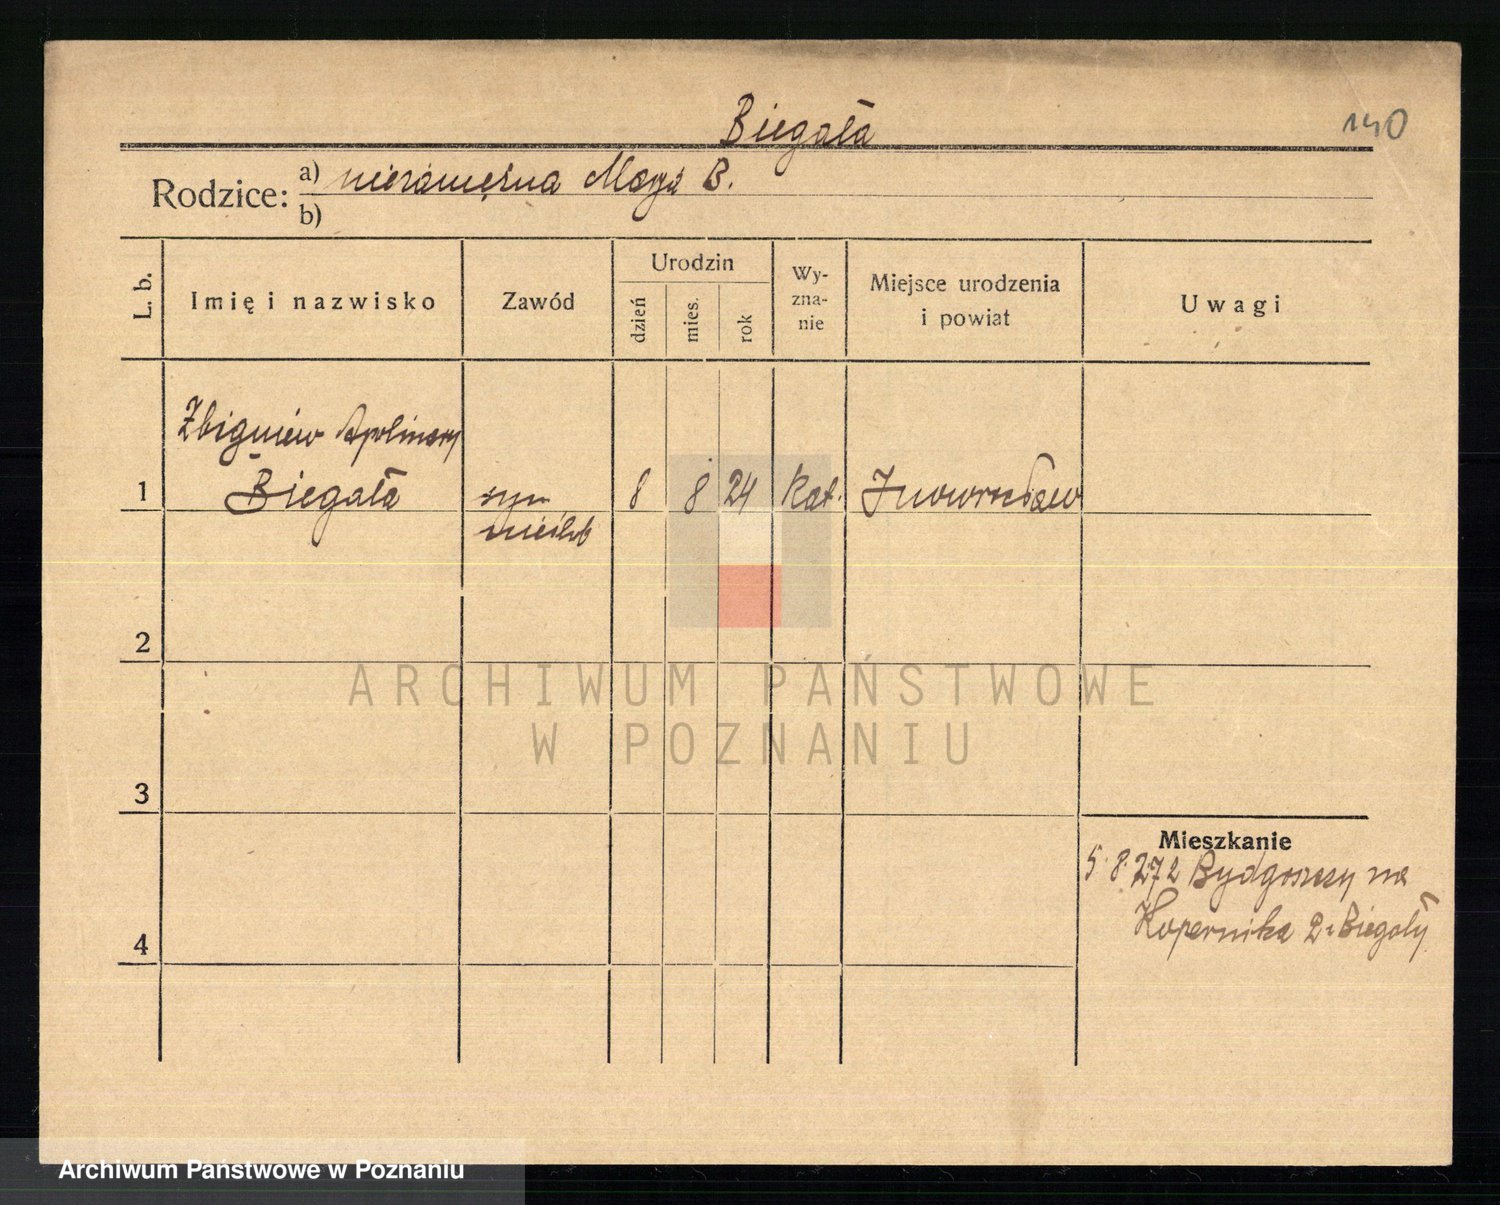 Biegała
140
Rodzice: a) niezamężna Marja B.
b)
L. b.
Imię i nazwisko
Zawód
Urodzin
dzień
mies.
rok
Wy-
zna-
nie
Miejsce urodzenia
i powiat
Uwagi
Zbigniew Apolinary
1 Biegała syn 8 8 24 Kat. Inowrocław
nieślub
2
ARCHIWUM PAŃSTWOWE
W POZNANIU
3
Mieszkanie
5.8.27 z Bydgoszczy na
Kopernika 2
4
Archiwum Państwowe w Poznaniu